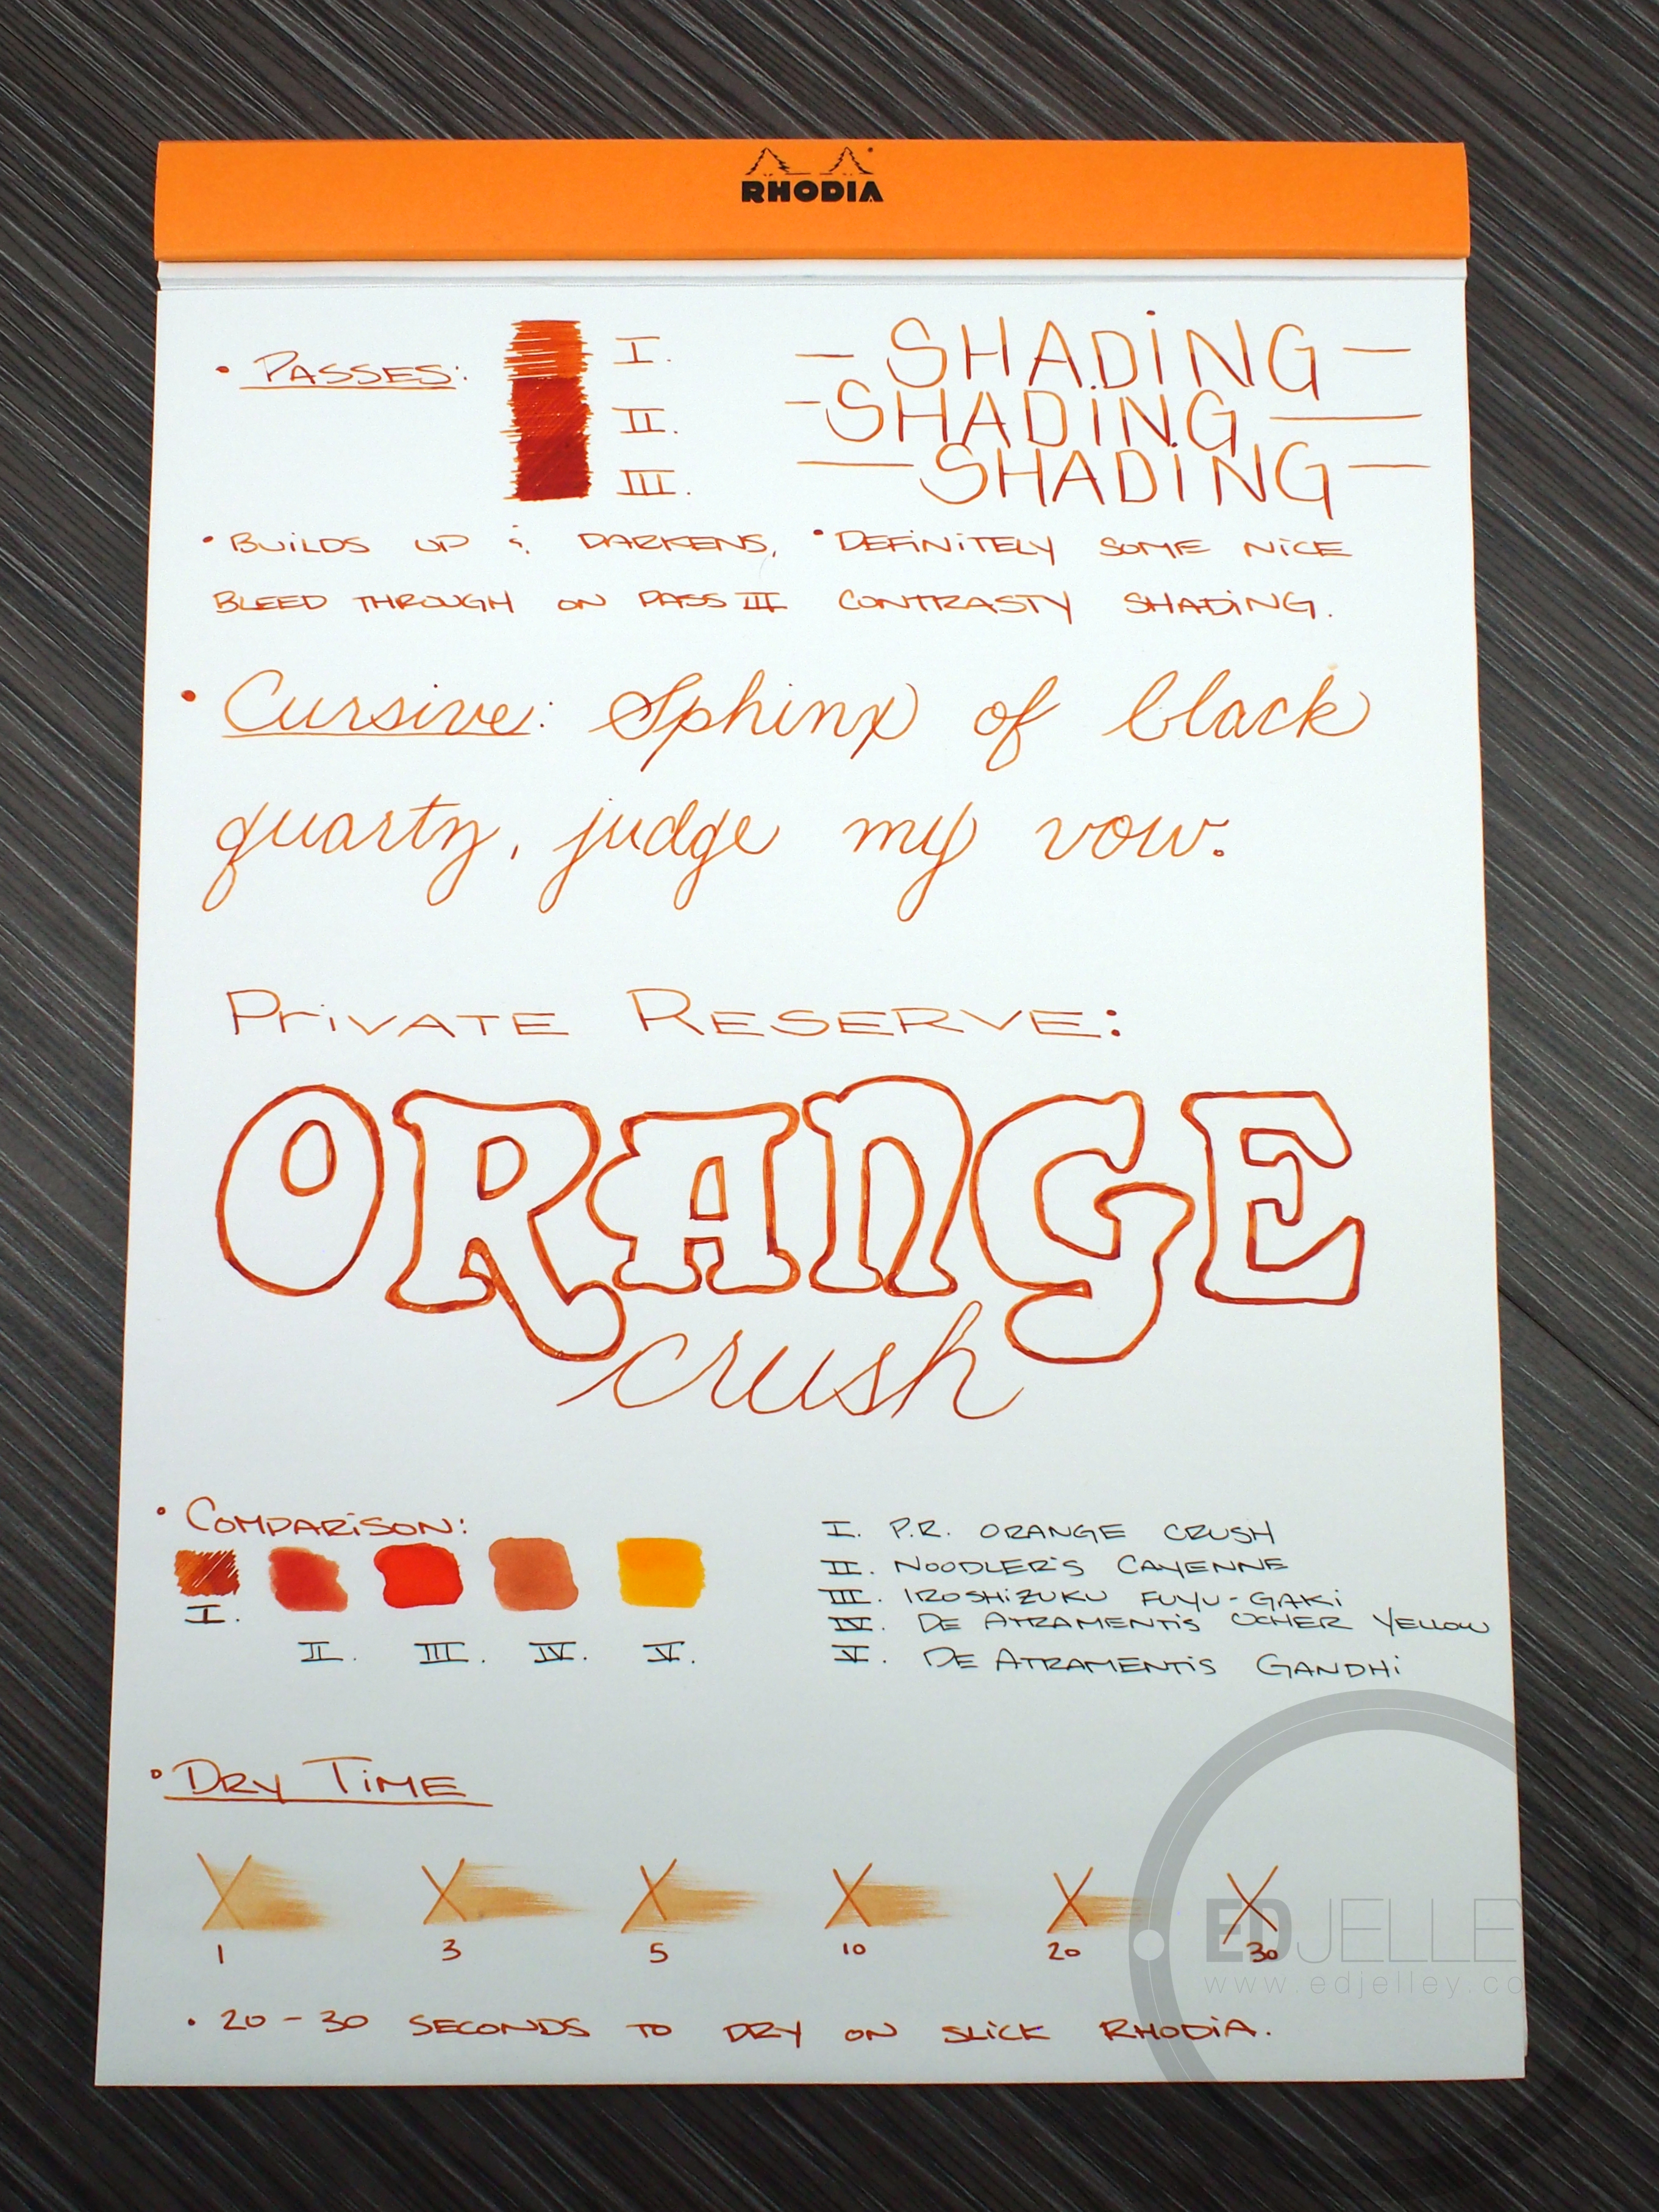 RHODIA
• PASSES:
I.
II.
III.
— SHADING —
— SHADING —
— SHADING —
• BUILDS UP & DARKENS,
BLEED THROUGH ON PASS III
• DEFINITELY SOME NICE
CONTRASTY SHADING.
• Cursive: Sphinx of black
quartz, judge my vow.
PRIVATE RESERVE:
ORANGE
crush
• COMPARISON:
I.
II. III. IV. V.
I. P.R. ORANGE CRUSH
II. NOODLER'S CAYENNE
III. IROSHIZUKU FUYU-GAKI
IV. DE ATRAMENTIS OCHER YELLOW
V. DE ATRAMENTIS GANDHI
• DRY TIME
X X X X X X
1 3 5 10 20 30
• 20-30 SECONDS TO DRY ON SLICK RHODIA.
EDJELLEY
www.edjelley.co